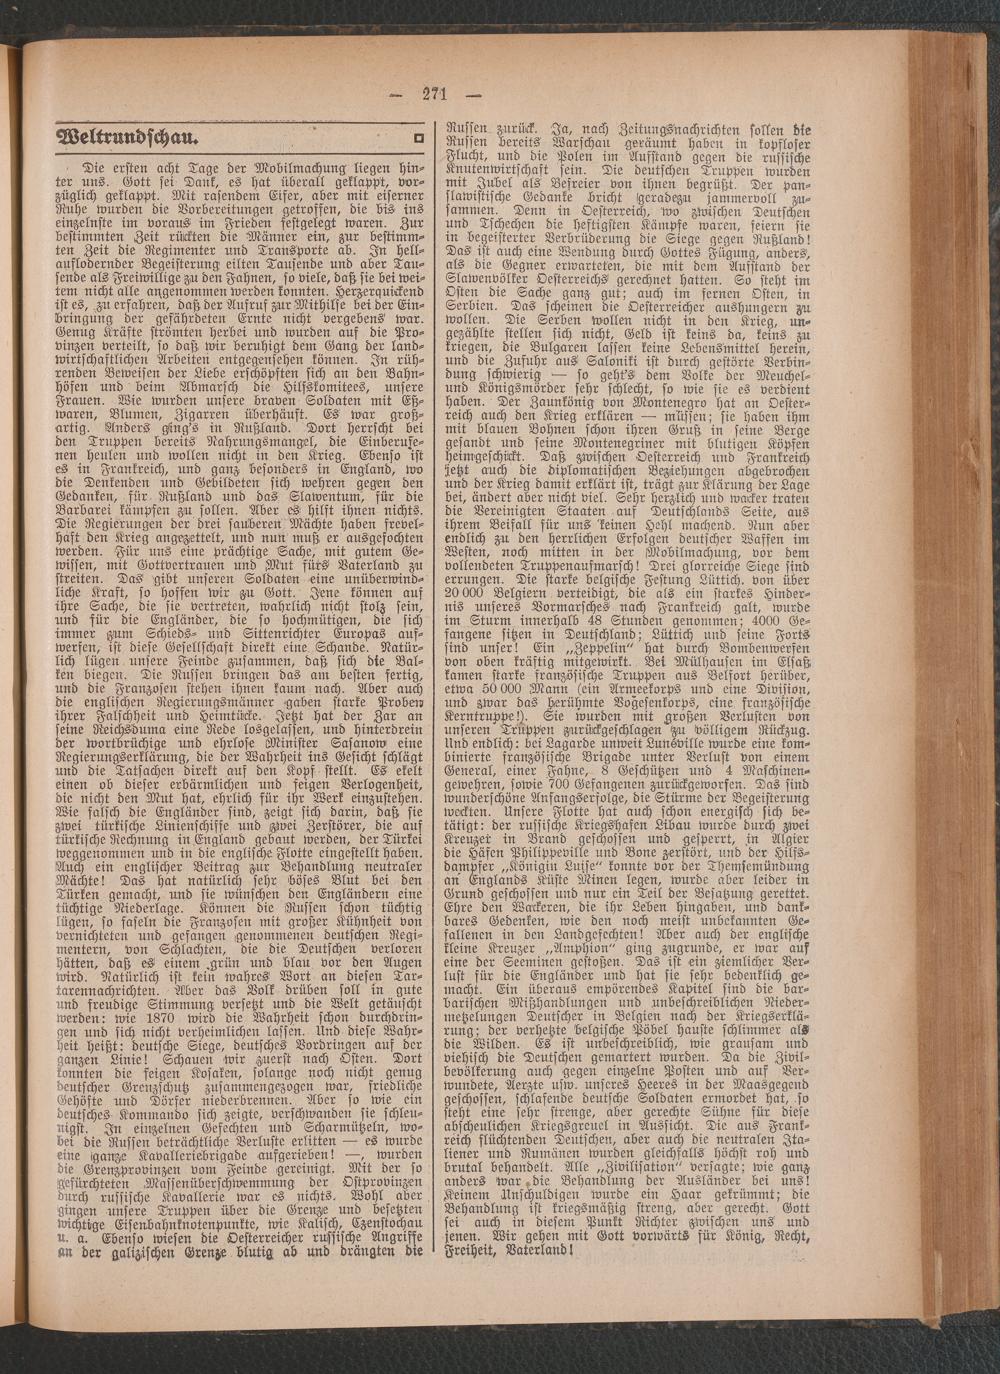 — 271 —
Weltrundschau.
Die ersten acht Tage der Mobilmachung liegen hin-
ter uns. Gott sei Dank, es hat überall geklappt, vor-
züglich geklappt. Mit rasendem Eifer, aber mit eiserner
Ruhe wurden die Vorbereitungen getroffen, die bis ins
einzelnste im voraus im Frieden festgelegt waren. Zur
bestimmten Zeit rückten die Männer ein, zur bestimm-
ten Zeit die Regimenter und Transporte ab. In hell-
auflodernder Begeisterung eilten Tausende und aber Tau-
sende als Freiwillige zu den Fahnen, so viele, daß sie bei wei-
tem nicht alle angenommen werden konnten. Herzerquickend
ist es, zu erfahren, daß der Aufruf zur Mithilfe bei der Ein-
bringung der gefährdeten Ernte nicht vergebens war.
Genug Kräfte strömten herbei und wurden auf die Pro-
vinzen verteilt, so daß wir beruhigt dem Gang der land-
wirtschaftlichen Arbeiten entgegensehen können. In rüh-
renden Beweisen der Liebe erschöpften sich an den Bahn-
höfen und beim Abmarsch die Hilfskomitees, unsere
Frauen. Wie wurden unsere braven Soldaten mit Eß-
waren, Blumen, Zigarren überhäuft. Es war groß-
artig. Anders ging's in Rußland. Dort herrscht bei
den Truppen bereits Nahrungsmangel, die Einberufe-
nen heulen und wollen nicht in den Krieg. Ebenso ist
es in Frankreich, und ganz besonders in England, wo
die Denkenden und Gebildeten sich wehren gegen den
Gedanken, für Rußland und das Slawentum, für die
Barbarei kämpfen zu sollen. Aber es hilft ihnen nichts.
Die Regierungen der drei sauberen Mächte haben frevel-
haft den Krieg angezettelt, und nun muß er ausgefochten
werden. Für uns eine prächtige Sache, mit gutem Ge-
wissen, mit Gottvertrauen und Mut fürs Vaterland zu
streiten. Das gibt unseren Soldaten eine unüberwind-
liche Kraft, so hoffen wir zu Gott. Jene können auf
ihre Sache, die sie vertreten, wahrlich nicht stolz sein,
und für die Engländer, die so hochmütigen, die sich
immer zum Schieds- und Sittenrichter Europas auf-
werfen, ist diese Gesellschaft direkt eine Schande. Natür-
lich lügen unsere Feinde zusammen, daß sich die Bal-
ken biegen. Die Russen bringen das am besten fertig,
und die Franzosen stehen ihnen kaum nach. Aber auch
die englischen Regierungsmänner gaben starke Proben
ihrer Falschheit und Heimtücke. Jetzt hat der Zar an
seine Reichsduma eine Rede losgelassen, und hinterdrein
der wortbrüchige und ehrlose Minister Sasanow eine
Regierungserklärung, die der Wahrheit ins Gesicht schlägt
und die Tatsachen direkt auf den Kopf stellt. Es ekelt
einen ob dieser erbärmlichen und feigen Verlogenheit,
die nicht den Mut hat, ehrlich für ihr Werk einzustehen.
Wie falsch die Engländer sind, zeigt sich darin, daß sie
zwei türkische Linienschiffe und zwei Zerstörer, die auf
türkische Rechnung in England gebaut werden, der Türkei
weggenommen und in die englische Flotte eingestellt haben.
Auch ein englischer Beitrag zur Behandlung neutraler
Mächte! Das hat natürlich sehr böses Blut bei den
Türken gemacht, und sie wünschen den Engländern eine
tüchtige Niederlage. Können die Russen schon tüchtig
lügen, so faseln die Franzosen mit großer Kühnheit von
vernichteten und gefangen genommenen deutschen Regi-
mentern, von Schlachten, die die Deutschen verloren
hätten, daß es einem grün und blau vor den Augen
wird. Natürlich ist kein wahres Wort an diesen Tar-
tarennachrichten. Aber das Volk drüben soll in gute
und freudige Stimmung versetzt und die Welt getäuscht
werden: wie 1870 wird die Wahrheit schon durchdrin-
gen und sich nicht verheimlichen lassen. Und diese Wahr-
heit heißt: deutsche Siege, deutsches Vordringen auf der
ganzen Linie! Schauen wir zuerst nach Osten. Dort
konnten die feigen Kosaken, solange noch nicht genug
deutscher Grenzschutz zusammengezogen war, friedliche
Gehöfte und Dörfer niederbrennen. Aber so wie ein
deutsches Kommando sich zeigte, verschwanden sie schleu-
nigst. In einzelnen Gefechten und Scharmützeln, wo-
bei die Russen beträchtliche Verluste erlitten — es wurde
eine ganze Kavalleriebrigade aufgerieben! —, wurden
die Grenzprovinzen vom Feinde gereinigt. Mit der so
gefürchteten Massenüberschwemmung der Ostprovinzen
durch russische Kavallerie war es nichts. Wohl aber
gingen unsere Truppen über die Grenze und besetzten
wichtige Eisenbahnknotenpunkte, wie Kalisch, Czenstochau
u. a. Ebenso wiesen die Oesterreicher russische Angriffe
an der galizischen Grenze blutig ab und drängten die
Russen zurück. Ja, nach Zeitungsnachrichten sollen die
Russen bereits Warschau geräumt haben in kopfloser
Flucht, und die Polen im Aufstand gegen die russische
Knutenwirtschaft sein. Die deutschen Truppen wurden
mit Jubel als Befreier von ihnen begrüßt. Der pan-
slawistische Gedanke bricht geradezu jammervoll zu-
sammen. Denn in Oesterreich, wo zwischen Deutschen
und Tschechen die heftigsten Kämpfe waren, feiern sie
in begeisterter Verbrüderung die Siege gegen Rußland!
Das ist auch eine Wendung durch Gottes Fügung, anders,
als die Gegner erwarteten, die mit dem Aufstand der
Slawenvölker Oesterreichs gerechnet hatten. So steht im
Osten die Sache ganz gut; auch im fernen Osten, in
Serbien. Das scheinen die Oesterreicher aushungern zu
wollen. Die Serben wollen nicht in den Krieg, un-
gezählte stellen sich nicht, Geld ist keins da, keins zu
kriegen, die Bulgaren lassen keine Lebensmittel herein,
und die Zufuhr aus Saloniki ist durch gestörte Verbin-
dung schwierig — so geht's dem Volke der Meuchel-
und Königsmörder sehr schlecht, so wie sie es verdient
haben. Der Zaunkönig von Montenegro hat an Oester-
reich auch den Krieg erklären — müssen; sie haben ihm
mit blauen Bohnen schon ihren Gruß in seine Berge
gesandt und seine Montenegriner mit blutigen Köpfen
heimgeschickt. Daß zwischen Oesterreich und Frankreich
jetzt auch die diplomatischen Beziehungen abgebrochen
und der Krieg damit erklärt ist, trägt zur Klärung der Lage
bei, ändert aber nicht viel. Sehr herzlich und wacker traten
die Vereinigten Staaten auf Deutschlands Seite, aus
ihrem Beifall für uns keinen Hehl machend. Nun aber
endlich zu den herrlichen Erfolgen deutscher Waffen im
Westen, noch mitten in der Mobilmachung, vor dem
vollendeten Truppenaufmarsch! Drei glorreiche Siege sind
errungen. Die starke belgische Festung Lüttich, von über
20 000 Belgiern verteidigt, die als ein starkes Hinder-
nis unseres Vormarsches nach Frankreich galt, wurde
im Sturm innerhalb 48 Stunden genommen; 4000 Ge-
fangene sitzen in Deutschland; Lüttich und seine Forts
sind unser! Ein „Zeppelin“ hat durch Bombenwerfen
von oben kräftig mitgewirkt. Bei Mülhausen im Elsaß
kamen starke französische Truppen aus Belfort herüber,
etwa 50 000 Mann (ein Armeekorps und eine Division,
und zwar das berühmte Vogesenkorps, eine französische
Kerntruppe!). Sie wurden mit großen Verlusten von
unseren Truppen zurückgeschlagen zu völligem Rückzug.
Und endlich: bei Lagarde unweit Lunéville wurde eine kom-
binierte französische Brigade unter Verlust von einem
General, einer Fahne, 8 Geschützen und 4 Maschinen-
gewehren, sowie 700 Gefangenen zurückgeworfen. Das sind
wunderschöne Anfangserfolge, die Stürme der Begeisterung
weckten. Unsere Flotte hat auch schon energisch sich be-
tätigt: der russische Kriegshafen Libau wurde durch zwei
Kreuzer in Brand geschossen und gesperrt, in Algier
die Häfen Philippeville und Bone zerstört, und der Hilfs-
dampfer „Königin Luise“ konnte vor der Themsemündung
an Englands Küste Minen legen, wurde aber leider in
Grund geschossen und nur ein Teil der Besatzung gerettet.
Ehre den Wackeren, die ihr Leben hingaben, und dank-
bares Gedenken, wie den noch meist unbekannten Ge-
fallenen in den Landgefechten! Aber auch der englische
kleine Kreuzer „Amphion“ ging zugrunde, er war auf
eine der Seeminen gestoßen. Das ist ein ziemlicher Ver-
lust für die Engländer und hat sie sehr bedenklich ge-
macht. Ein überaus empörendes Kapitel sind die bar-
barischen Mißhandlungen und unbeschreiblichen Nieder-
metzelungen Deutscher in Belgien nach der Kriegserklä-
rung; der verhetzte belgische Pöbel hauste schlimmer als
die Wilden. Es ist unbeschreiblich, wie grausam und
viehisch die Deutschen gemartert wurden. Da die Zivil-
bevölkerung auch gegen einzelne Posten und auf Ver-
wundete, Aerzte usw. unseres Heeres in der Maasgegend
geschossen, schlafende deutsche Soldaten ermordet hat, so
steht eine sehr strenge, aber gerechte Sühne für diese
abscheulichen Kriegsgreuel in Aussicht. Die aus Frank-
reich flüchtenden Deutschen, aber auch die neutralen Ita-
liener und Rumänen wurden gleichfalls höchst roh und
brutal behandelt. Alle „Zivilisation“ versagte; wie ganz
anders war die Behandlung der Ausländer bei uns!
Keinem Unschuldigen wurde ein Haar gekrümmt; die
Behandlung ist kriegsmäßig streng, aber gerecht. Gott
sei auch in diesem Punkt Richter zwischen uns und
jenen. Wir gehen mit Gott vorwärts für König, Recht,
Freiheit, Vaterland!